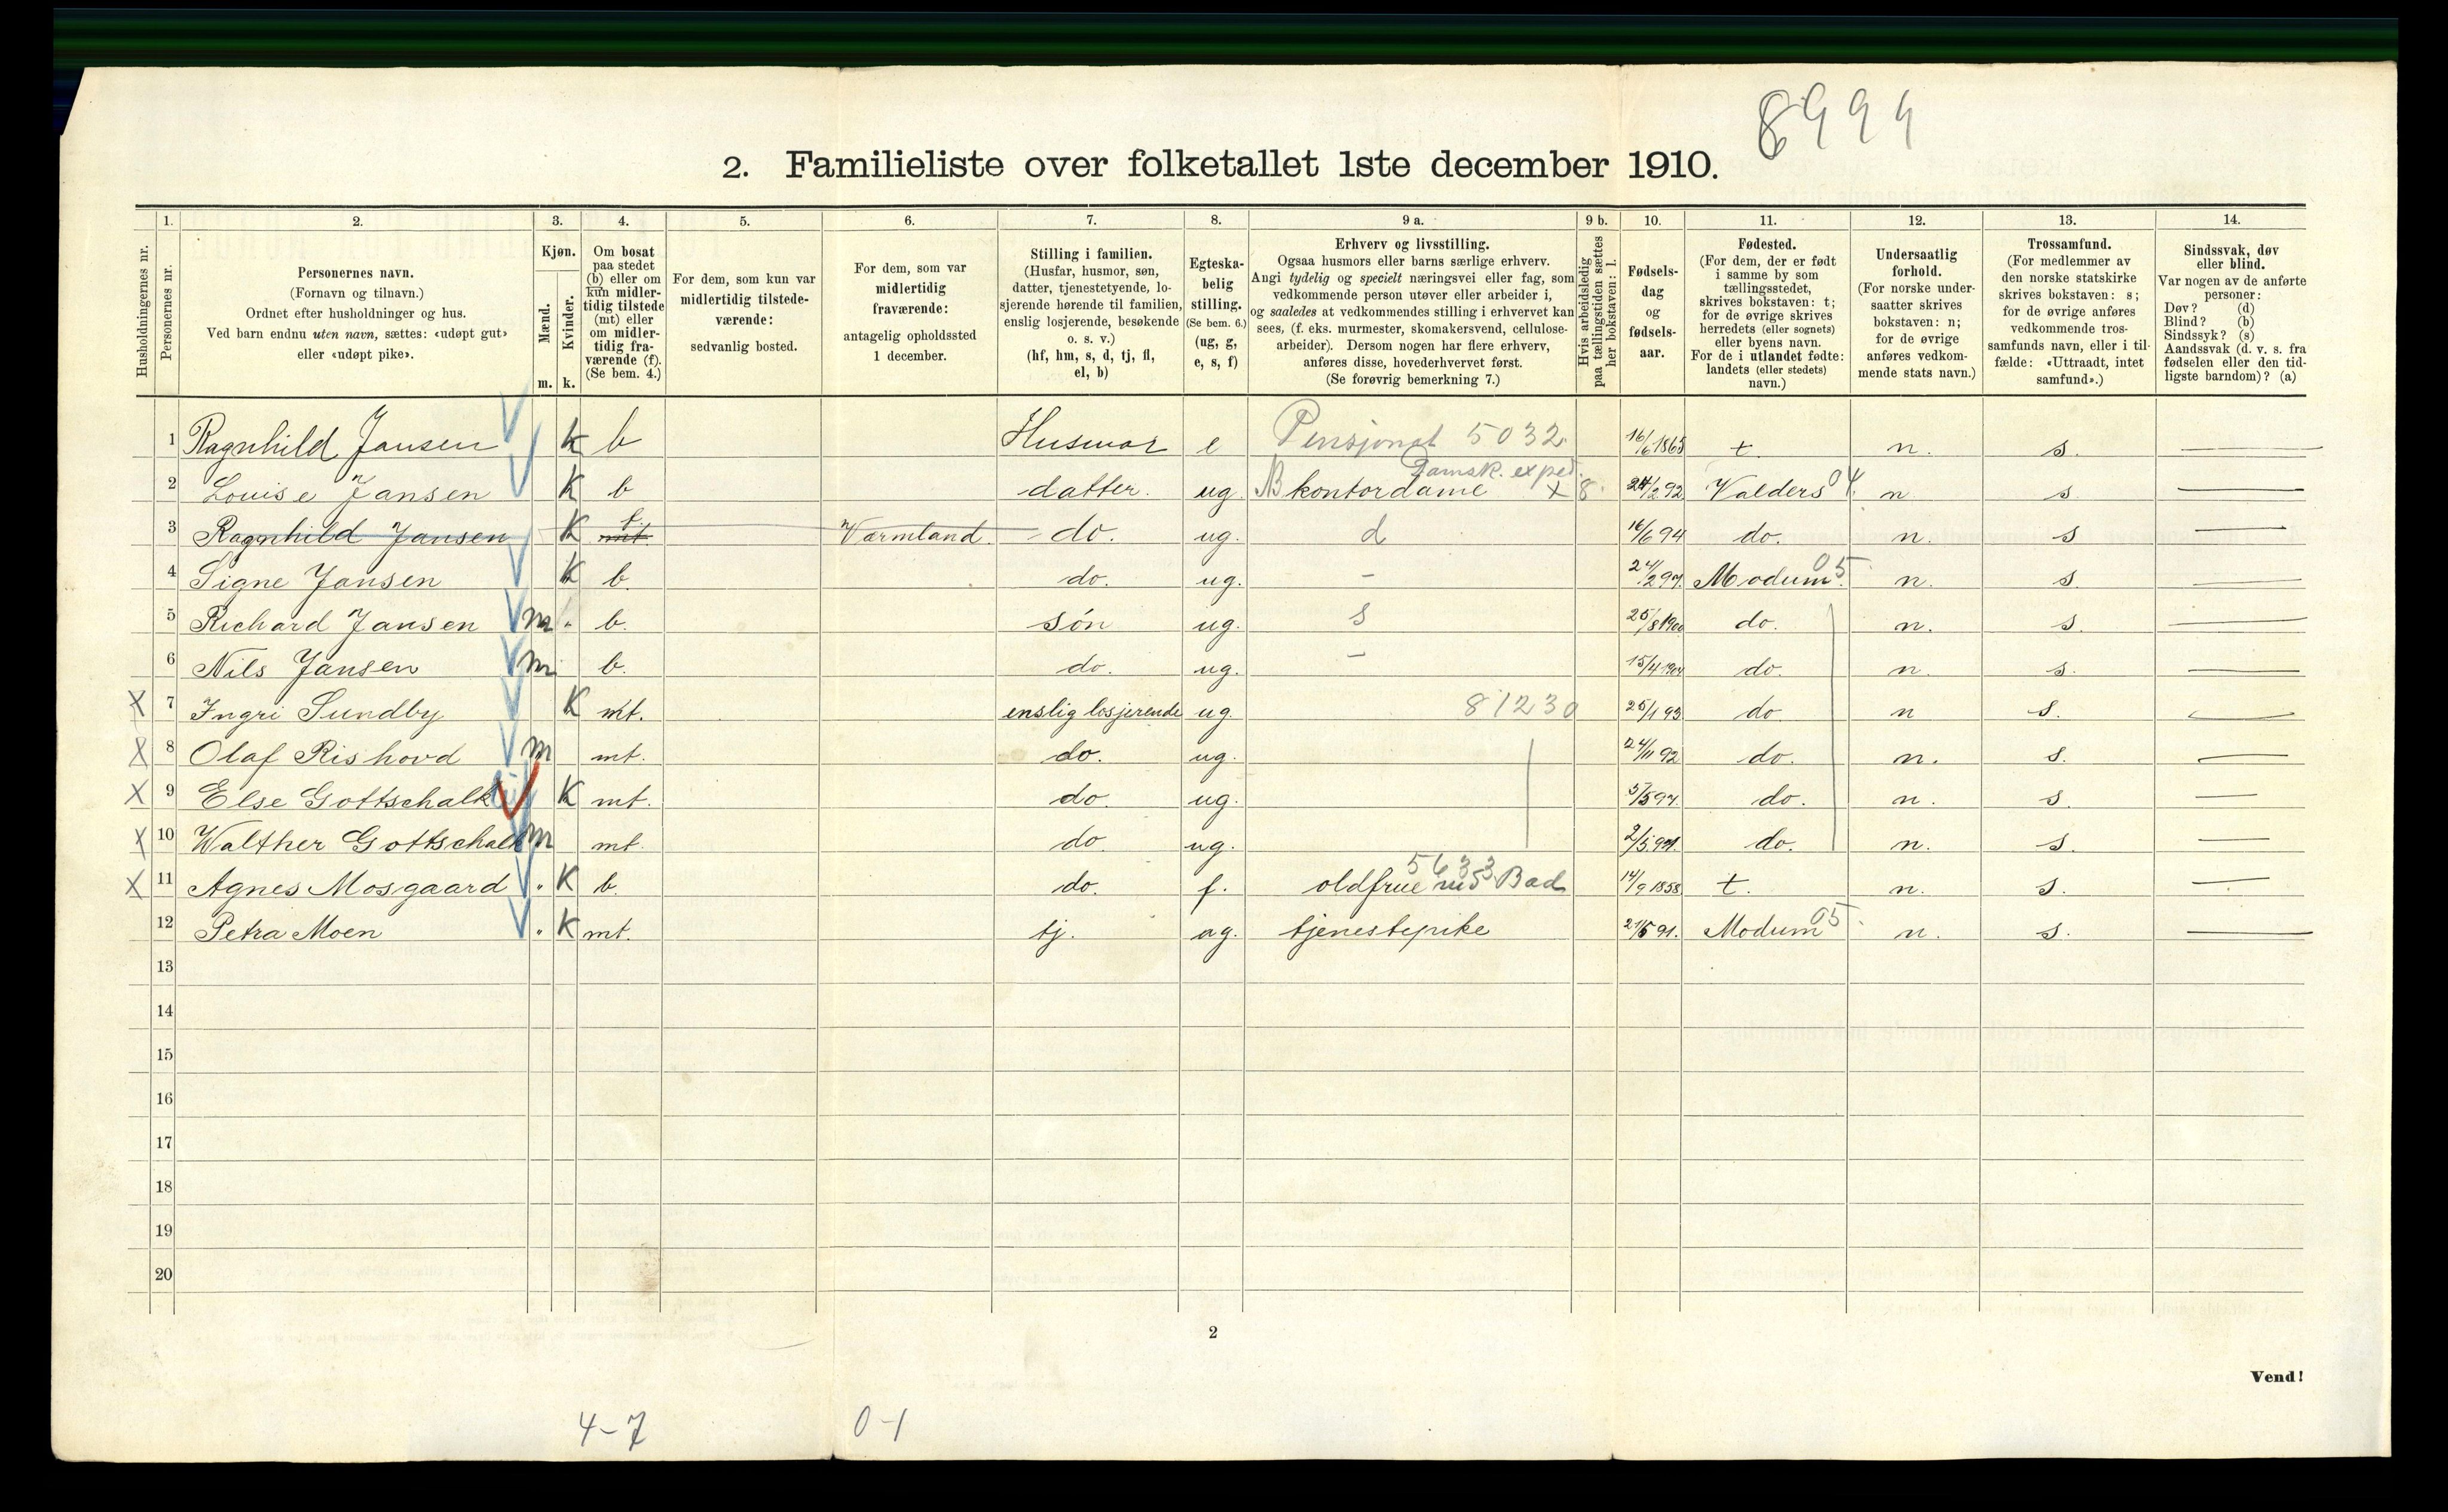 8994
2. Familieliste over folketallet 1ste december 1910.
Husholdningernes nr.
1. Personernes nr.
2. Personernes navn.
(Fornavn og tilnavn.)
Ordnet efter husholdninger og hus.
Ved barn endnu uten navn, sættes: «udøpt gut»
eller «udøpt pike».
3. Kjøn.
Mænd. m.
Kvinder. k.
4. Om bosat
paa stedet
(b) eller om
kun midler-
tidig tilstede
(mt) eller
om midler-
tidig fra-
værende (f).
(Se bem. 4.)
5. For dem, som kun var
midlertidig tilstede-
værende:
sedvanlig bosted.
6. For dem, som var
midlertidig
fraværende:
antagelig opholdssted
1 december.
7. Stilling i familien.
(Husfar, husmor, søn,
datter, tjenestetyende, lo-
sjerende hørende til familien,
enslig losjerende, besøkende
o. s. v.)
(hf, hm, s, d, tj, fl,
el, b)
8. Egteska-
belig
stilling.
(Se bem. 6.)
(ug, g,
e, s, f)
9 a. Erhverv og livsstilling.
Ogsaa husmors eller barns særlige erhverv.
Angi tydelig og specielt næringsvei eller fag, som
vedkommende person utøver eller arbeider i,
og saaledes at vedkommendes stilling i erhvervet kan
sees, (f. eks. murmester, skomakersvend, cellulose-
arbeider). Dersom nogen har flere erhverv,
anføres disse, hovederhvervet først.
(Se forøvrig bemerkning 7.)
9 b. Hvis arbeidsledig
paa tællingstiden sættes
her bokstaven: l.
10. Fødsels-
dag
og
fødsels-
aar.
11. Fødested.
(For dem, der er født
i samme by som
tællingsstedet,
skrives bokstaven: t;
for de øvrige skrives
herredets (eller sognets)
eller byens navn.
For de i utlandet fødte:
landets (eller stedets)
navn.)
12. Undersaatlig
forhold.
(For norske under-
saatter skrives
bokstaven: n;
for de øvrige
anføres vedkom-
mende stats navn.)
13. Trossamfund.
(For medlemmer av
den norske statskirke
skrives bokstaven: s;
for de øvrige anføres
vedkommende tros-
samfunds navn, eller i til-
fælde: «Uttraadt, intet
samfund».)
14. Sindssvak, døv
eller blind.
Var nogen av de anførte
personer:
Døv? (d)
Blind? (b)
Sindssyk? (s)
Aandssvak (d. v. s. fra
fødselen eller den tid-
ligste barndom)? (a)
1 Ragnhild Jansen K b Husmor e Pensjonat 5032 16/6 1865 t. n. s.
Damsk. exped.
2 Louise Jansen K b datter. ug. B kontordame x 8. 24/2 92 Valders 04 n s
3 Ragnhild Jansen K f. mt. Værmland. do. ug. d 16/6 94 do. n. s
4 Signe Jansen K b. do. ug. – 24/2 97. Modum 05 n. s
5 Richard Jansen m b. són ug. s 25/8 1900 do. n. s.
6 Nils Jansen m b. do. ug. – 15/4 1904 do. n s.
X 7 Ingri Sundby K mt. enslig losjerende ug. 81230 25/1 93 do n s.
X 8 Olaf Rishovd m mt. do. ug. 24/11 92 do. n. s.
X 9 Else Gottschalk K mt. do. ug. 5/5 97. do. n. s.
X 10 Walther Gottschalk m mt. do. ug. do. n. s.
5633
X 11 Agnes Mosgaard K b. do. f. oldfrue Bad 14/9 1858 t. n. s.
12 Petra Moen K mt. tj. ug. tjenestepike 21/5 91. Modum 05 n. s.
13
14
15
16
17
18
19
20
2
Vend!
4–7 0–1